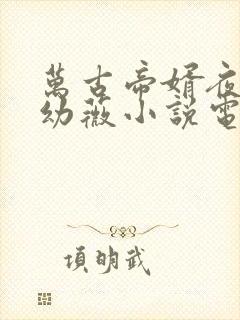 萬古帝婿夜
幼薇小說電
項明武